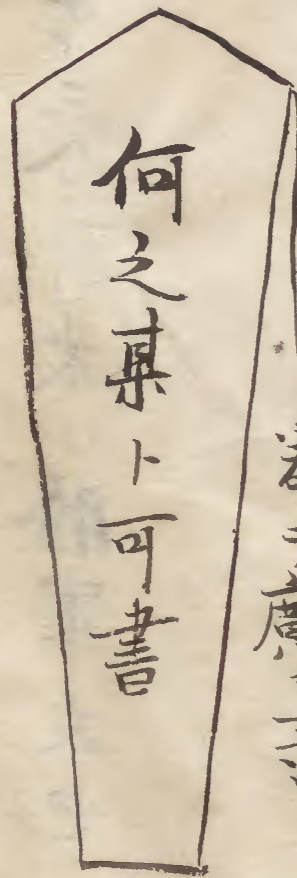 何之某ト可書